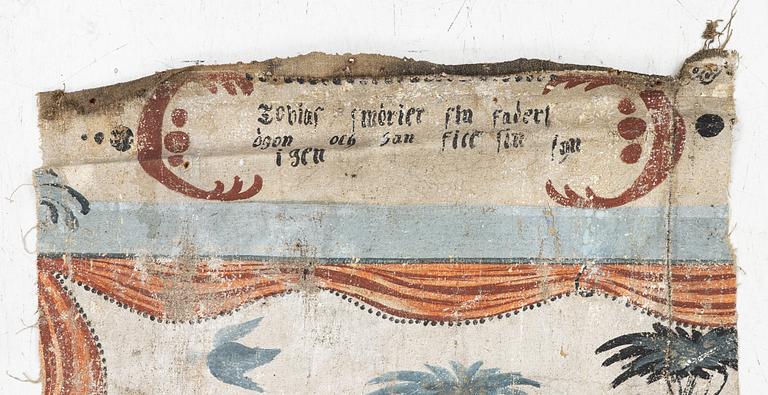 Tobias smörier sin faders
ögon och han fick sin syn
igen